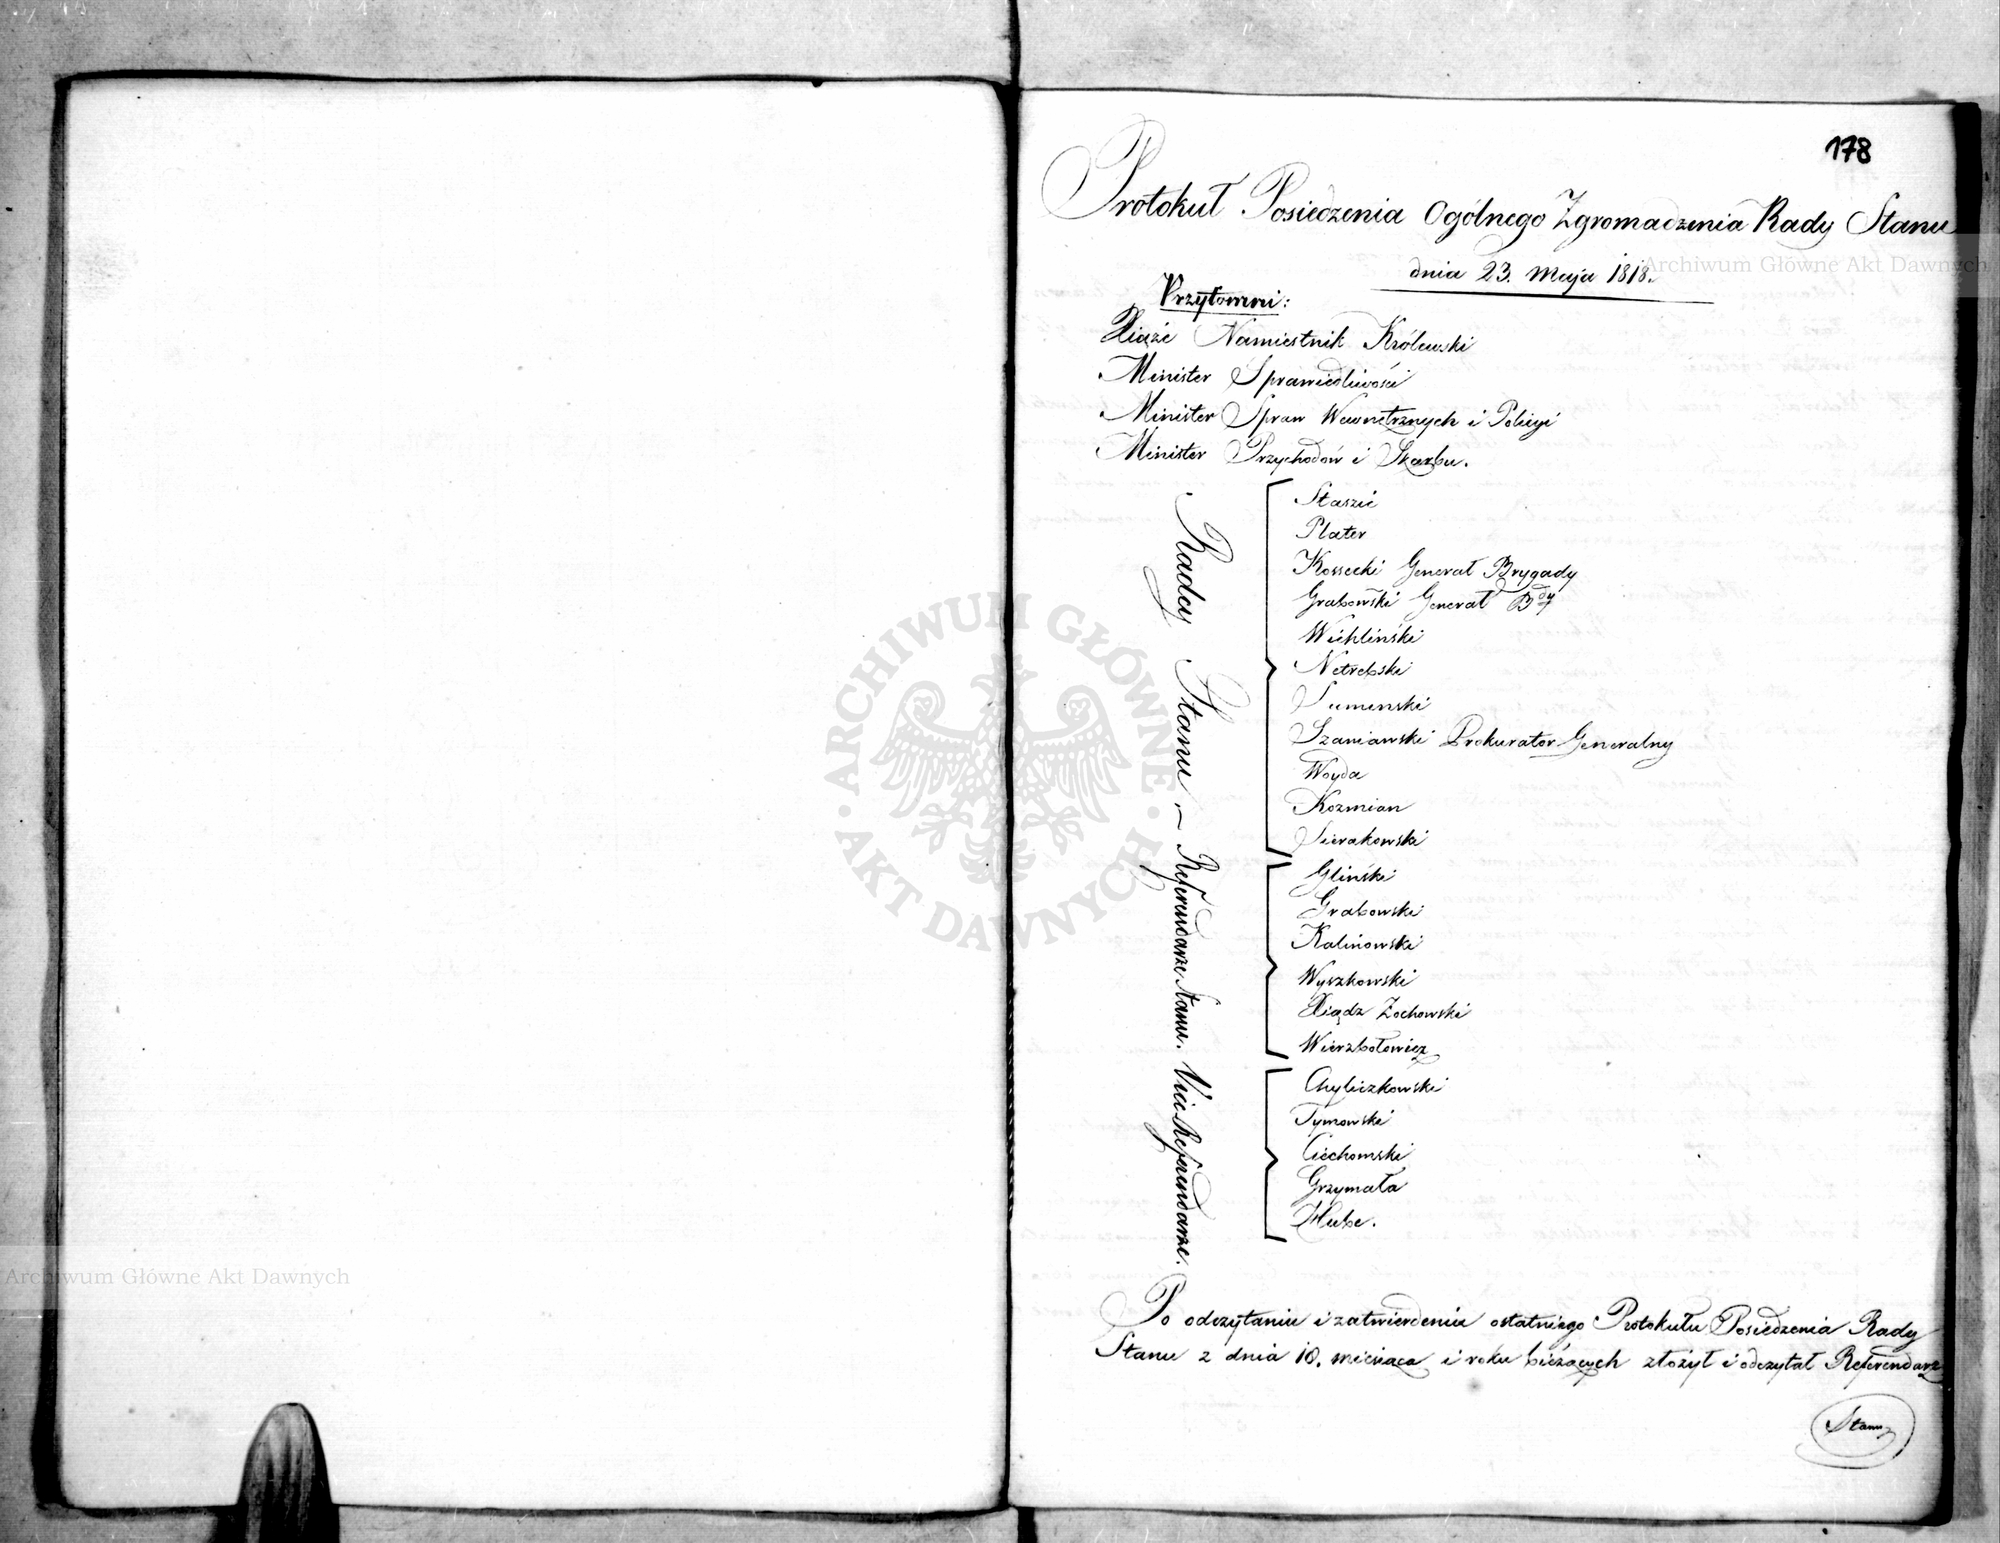 178
Protokuł Posiedzenia Ogólnego Zgromadzenia Rady Stanu
dnia 23. Maja 1818.
Przytomni:
Xiąże Namiestnik Królewski
Minister Sprawiedliwości
Minister Spraw Wewnętrznych i Policyi
Minister Przychodów i Skarbu.
Radcy Stanu –
Staszic
Plater
Kossecki Generał Brygady
Grabowski Generał Bdy
Wichliński
Netrebski
Sumiński
Szaniawski Prokurator Generalny
Woyda
Kozmian
Sierakowski
Referendarze Stanu.
Gliński
Grabowski
Kalinowski
Wyszkowski
Xiądz Zochowski
Wierzbołowicz
Vice Referendarze.
Chyliczkowski
Tymowski
Ciechomski
Grzymała
Hube.
Po odczytaniu i zatwierdzeniu ostatniego Protokułu Posiedzenia Rady
Stanu z dnia 18. miesiąca i roku bieżących złożył i odczytał Referendarz
Stanu
Archiwum Główne Akt Dawnych
Archiwum Główne Akt Dawnych
ARCHIWUM GŁÓWNE · AKT DAWNYCH ·